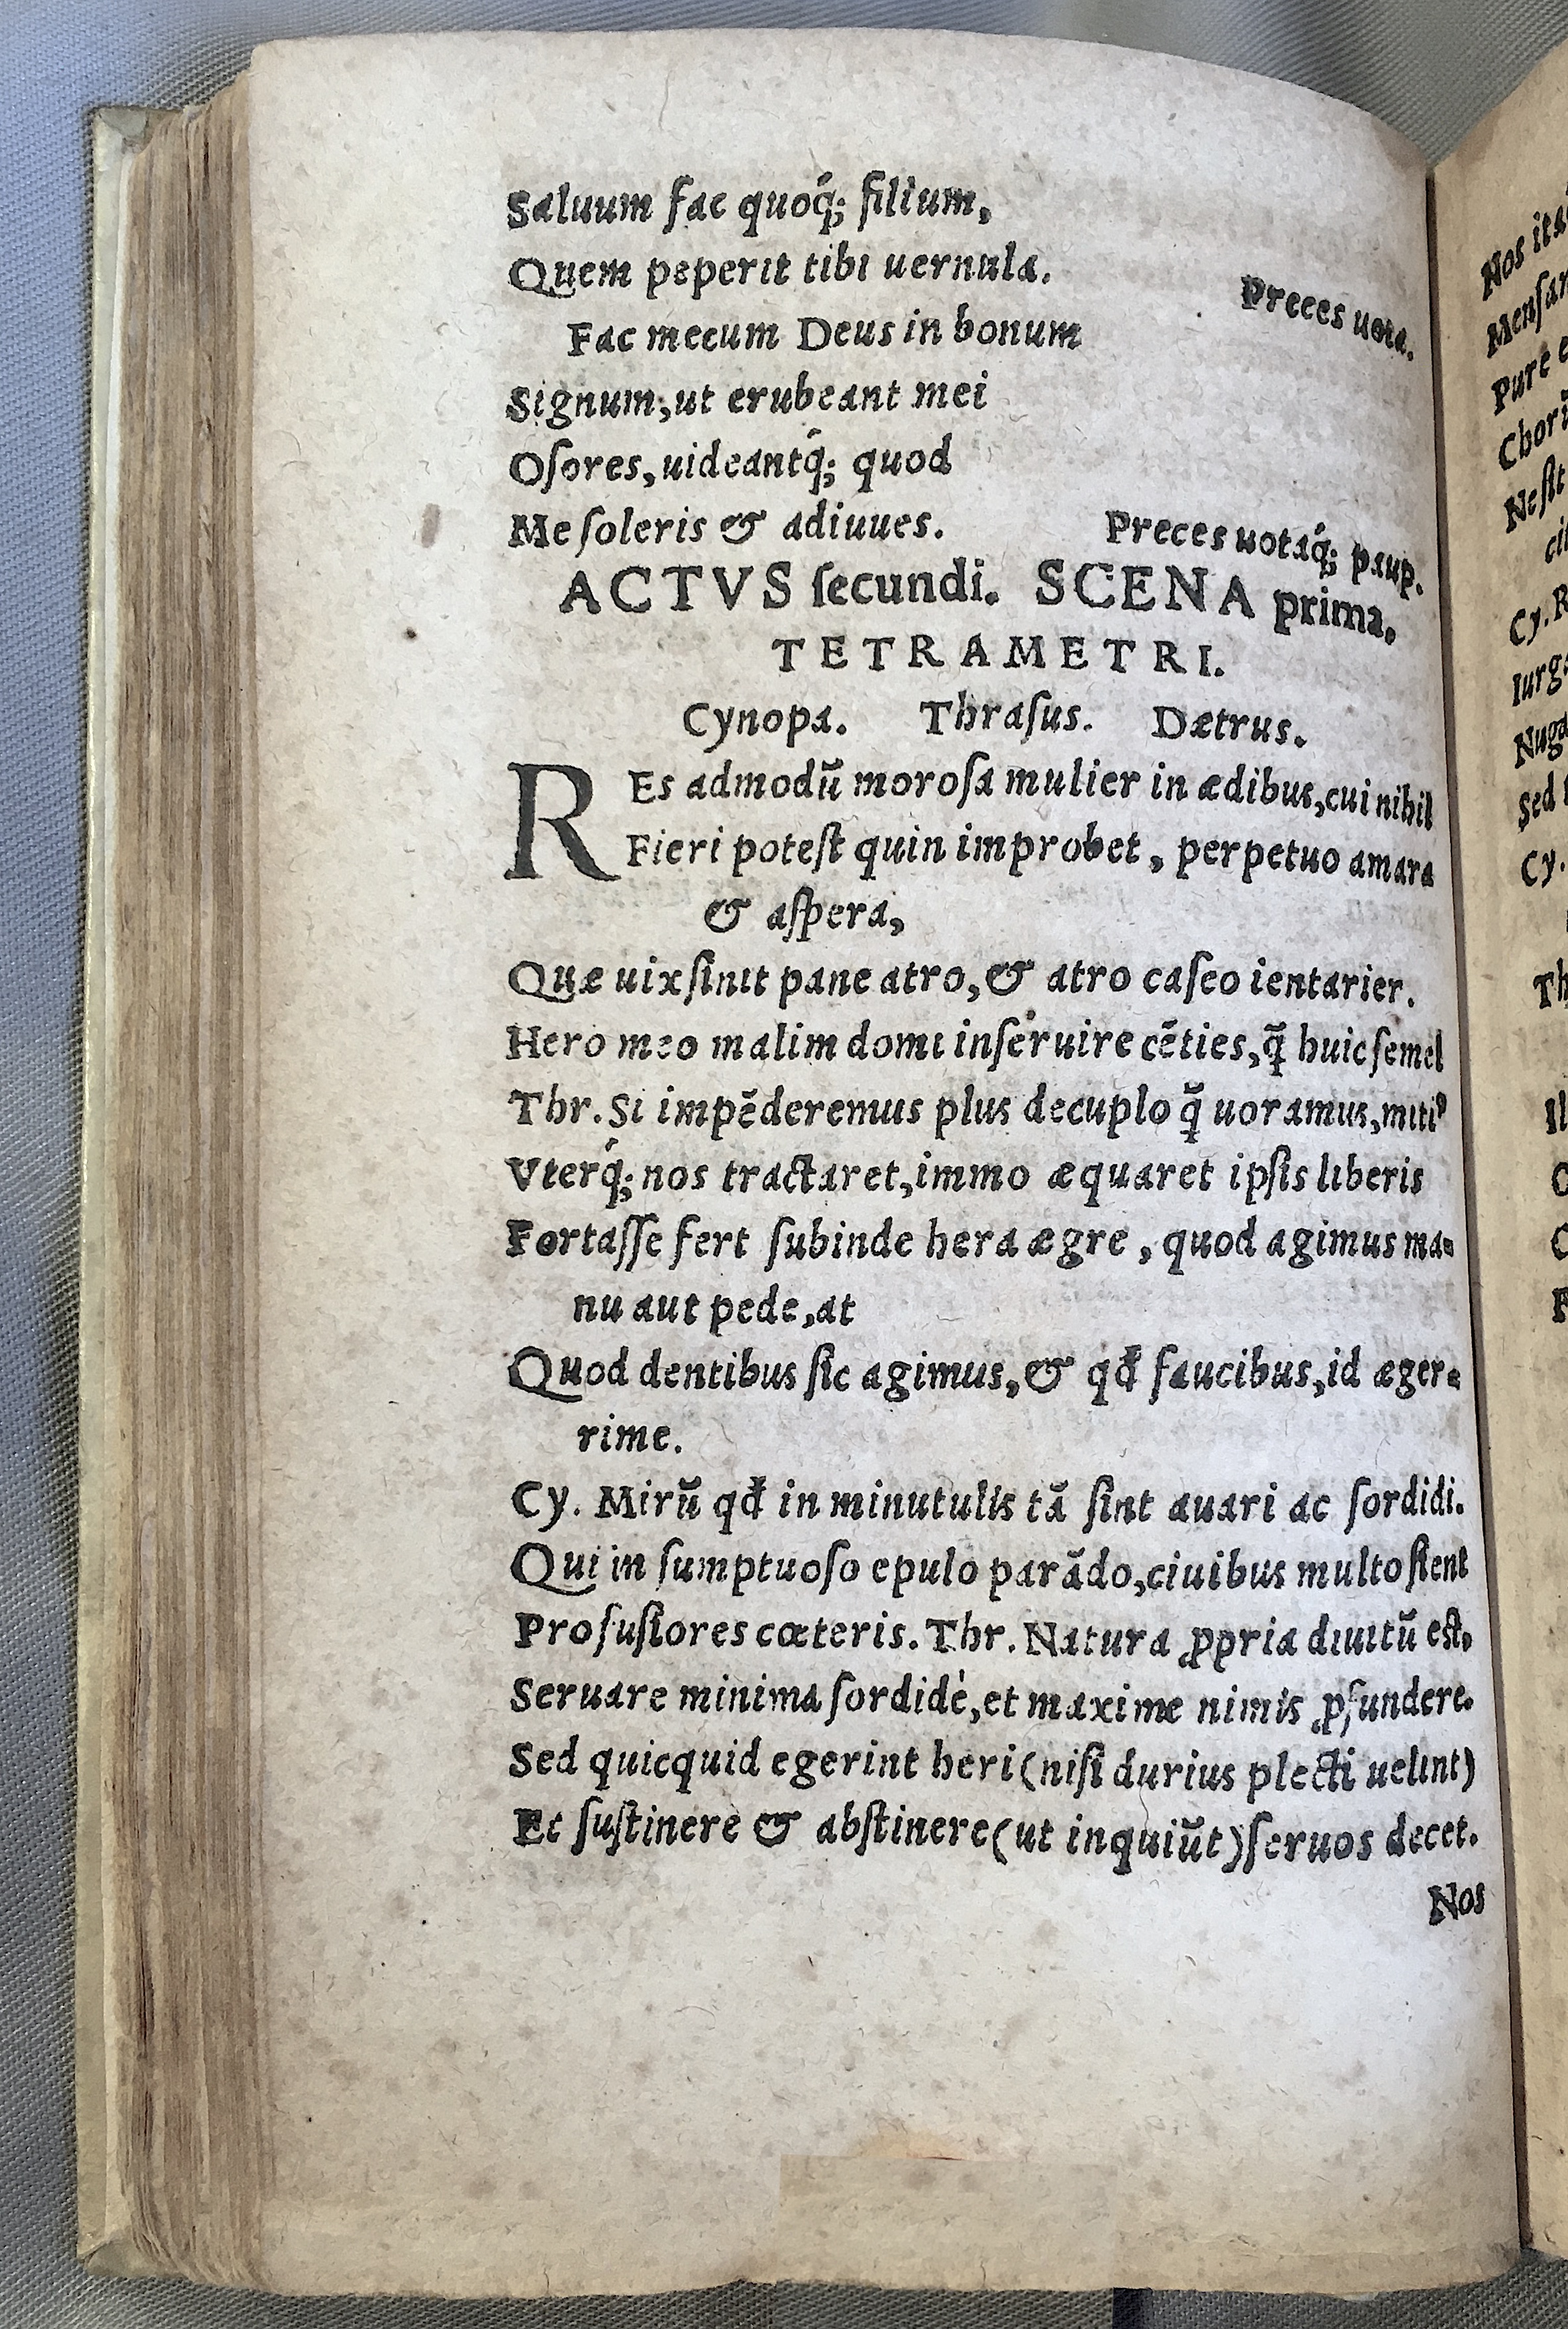 Saluum fac quoq́; filium,
Quem peperit tibi uernula.
Preces uota.
Fac mecum Deus in bonum
Signum, ut erubeant mei
Oſores, uideantq́; quod
Me ſoleris & adiuues.
Preces uotaq́; paup.
ACTVS ſecundi. SCENA prima.
TETRAMETRI.
Cynopa. Thraſus. Dætrus.
REs admodū moroſa mulier in ædibus, cui nihil
Fieri poteſt quin improbet, perpetuo amara
& aſpera,
Quæ uix ſinit pane atro, & atro caſeo ientarier.
Hero meo malim domi inſeruire cēties, q̄ huic ſemel
Thr. Si impēderemus plus decuplo q̄ uoramus, mitiꝰ
Vterq́; nos tractaret, immo æquaret ipſis liberis
Fortaſſe fert ſubinde hera ægre, quod agimus ma=
nu aut pede, at
Quod dentibus ſic agimus, & qđ faucibus, id æger=
rime.
Cy. Mirū qđ in minutulis tā ſint auari ac ſordidi.
Qui in ſumptuoſo epulo parādo, ciuibus multo ſient
Profuſiores cœteris. Thr. Natura ꝓpria diuitū est,
Seruare minima ſordidè, et maxime nimis ꝓfundere.
Sed quicquid egerint heri (niſi durius plecti uelint)
Et ſuſtinere & abſtinere (ut inquiūt) ſeruos decet.
Nos
Nos ita
Menſar
Pure e
Chorū
Neſit
Cy. R
Iurg
Nuga
Sed
Cy.
Th